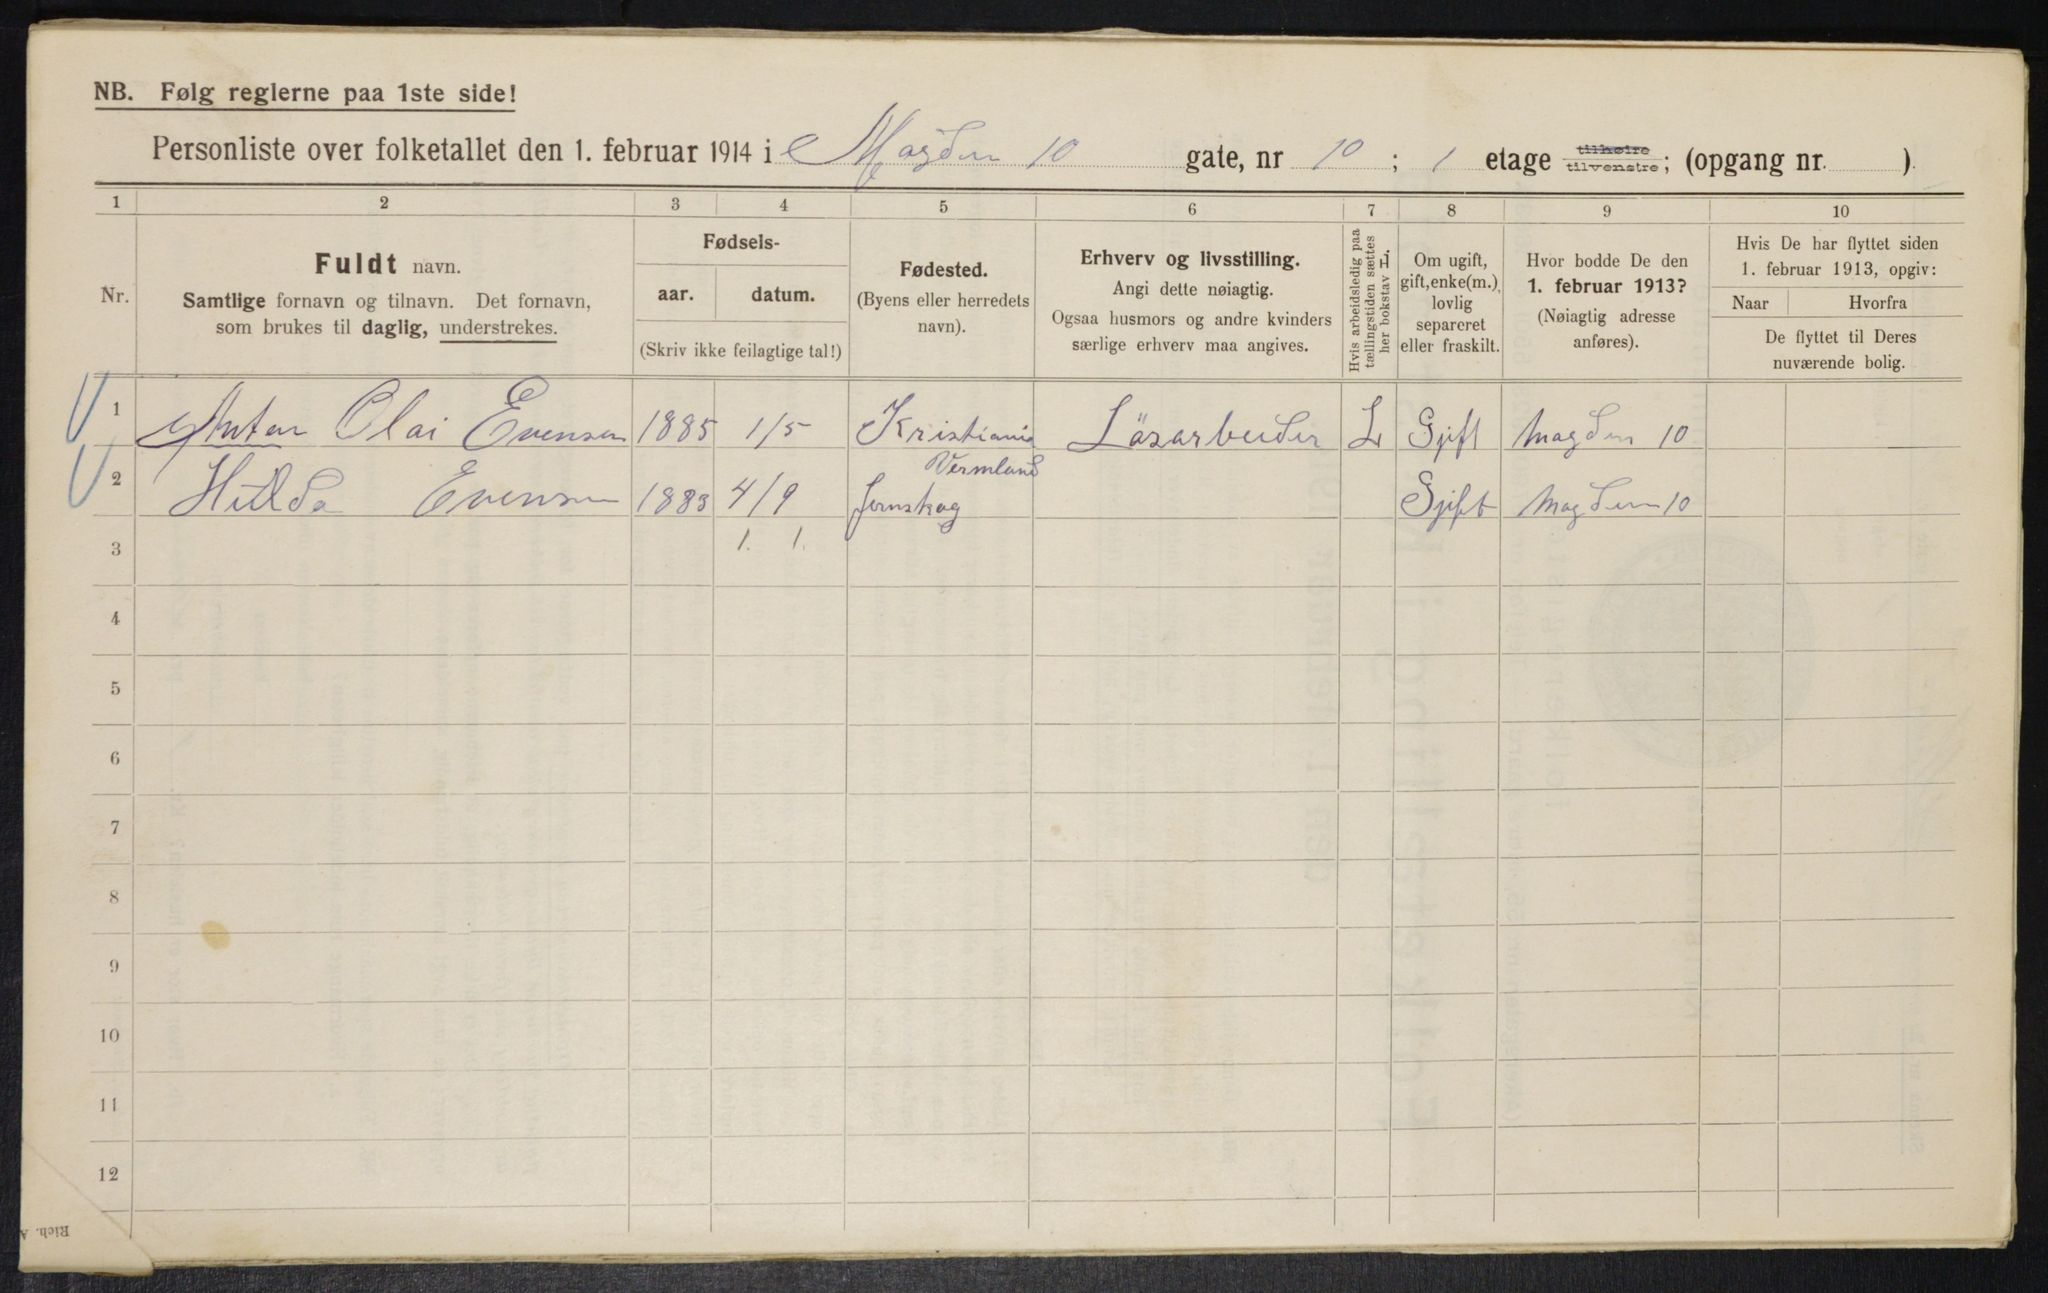 NB. Følg reglerne paa 1ste side!
Personliste over folketallet den 1. februar 1914 i Magdem 10 gate, nr 10 ; 1 etage tilhøire tilvenstre; (opgang nr. ).
1 2 3 4 5 6 7 8 9 10
Nr.
Fuldt navn.
Samtlige fornavn og tilnavn. Det fornavn,
som brukes til daglig, understrekes.
Fødsels-
aar. datum.
(Skriv ikke feilagtige tal!)
Fødested.
(Byens eller herredets
navn).
Erhverv og livsstilling.
Angi dette nøiagtig.
Ogsaa husmors og andre kvinders
særlige erhverv maa angives.
Hvis arbeidsledig paa
tællingstiden sættes
her bokstav L.
Om ugift,
gift, enke(m.),
lovlig
separeret
eller fraskilt.
Hvor bodde De den
1. februar 1913?
(Nøiagtig adresse
anføres).
Hvis De har flyttet siden
1. februar 1913, opgiv:
Naar Hvorfra
De flyttet til Deres
nuværende bolig.
1 Anton Olai Evensen 1885 1/5 Kristiania Lösarbeider L Gjift Magdem 10
Vermland
2 Hilda Evensen 1883 4/9 Jernskog Gjift Magdem 10
1. 1.
3
4
5
6
7
8
9
10
11
12
Rich. A